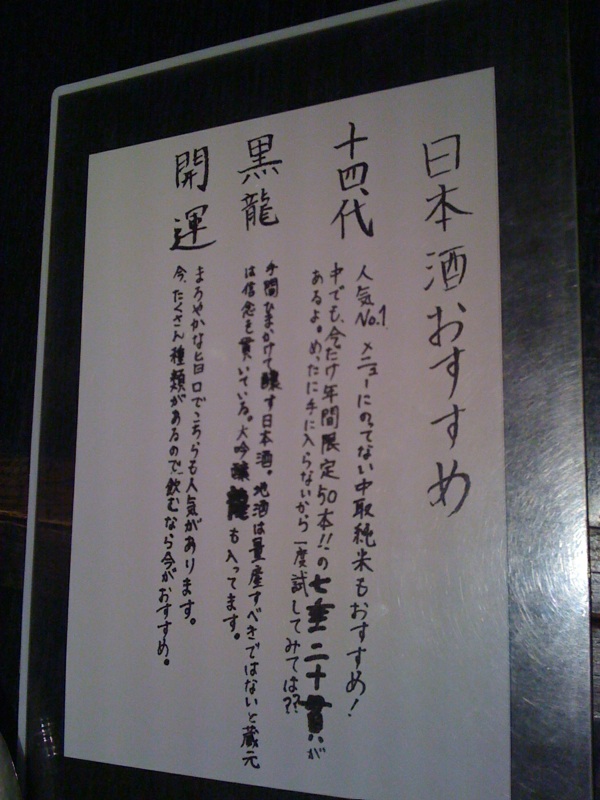 日本酒おすすめ
十四代
人気No.1 メニューにのってない中取純米もおすすめ!
中でも、今だけ年間限定50本!!の七垂二十貫が
あるよ。めったに手に入らないから一度試してみては??
黒龍
手間ひまかけて醸す日本酒。地酒は量産すべきではないと蔵元
は信念を貫いている。大吟醸 も入ってます。
開運
まろやかな旨口でこちらも人気があります。
今、たくさん種類があるので飲むなら今がおすすめ。